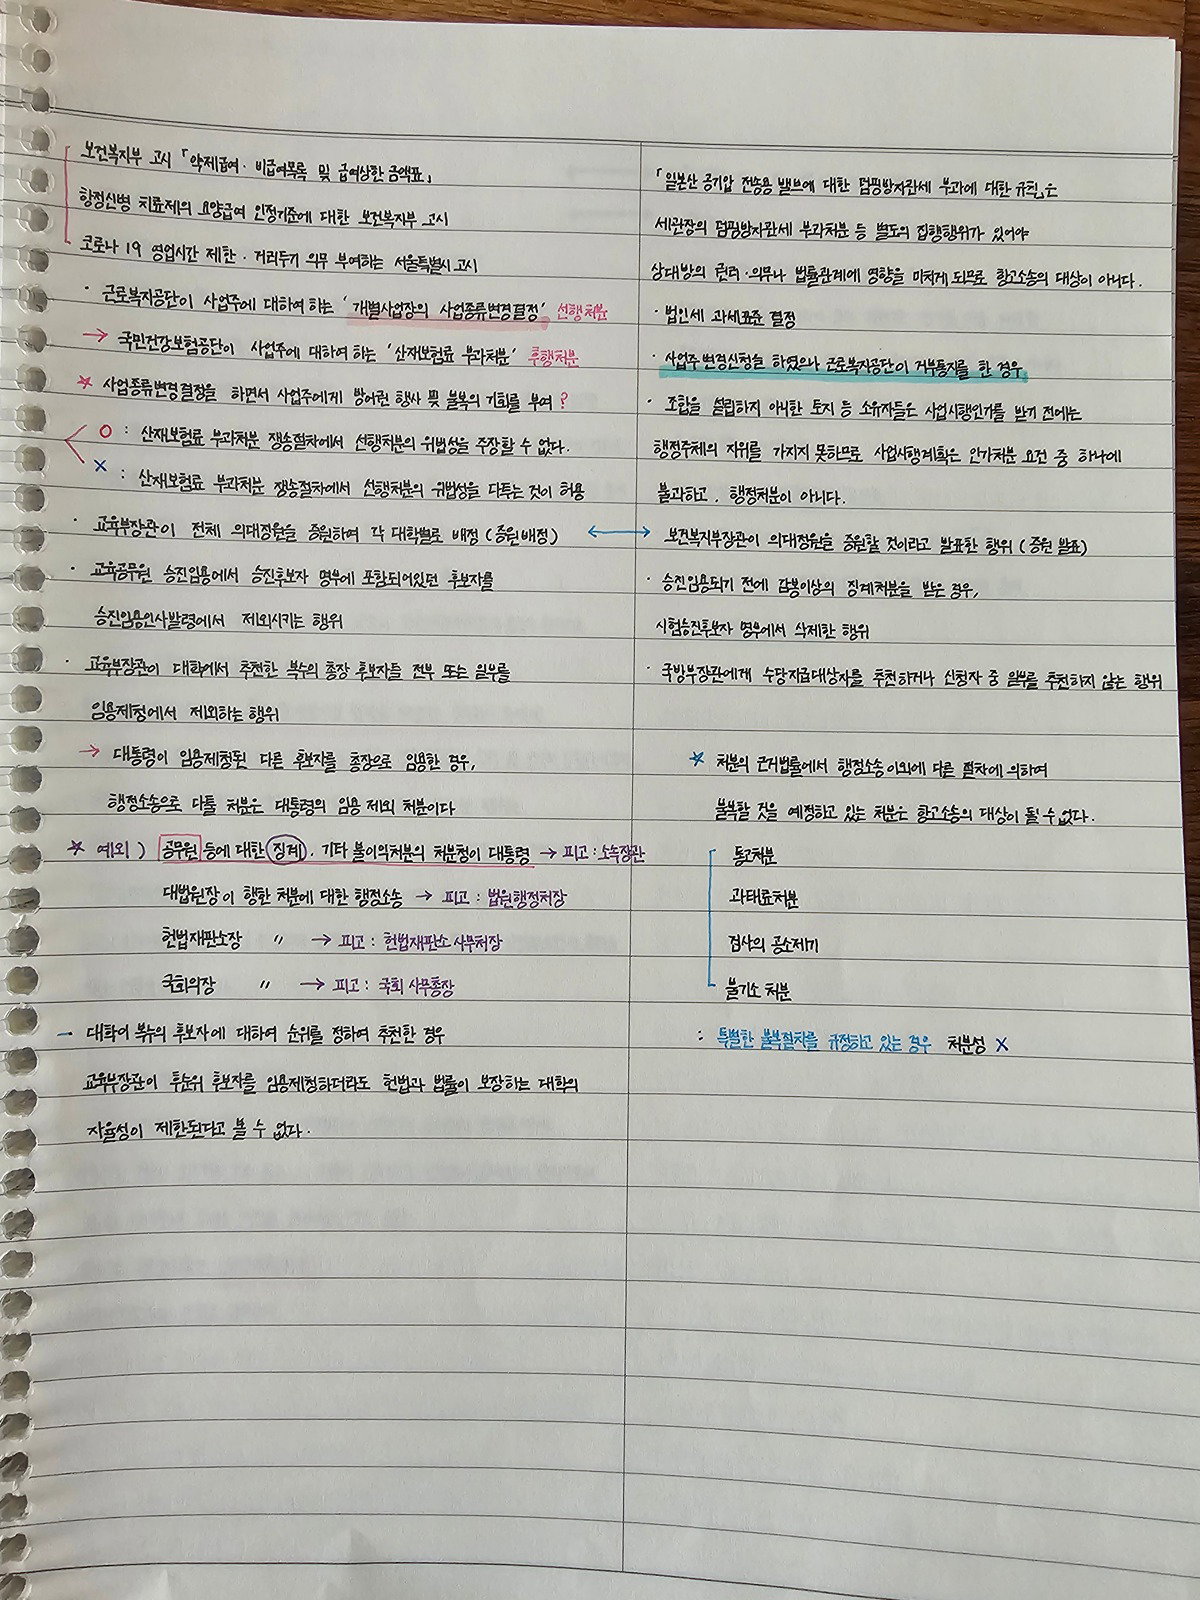 보건복지부 고시 「약제급여·비급여목록 및 급여상한 금액표」
항정신병 치료제의 요양급여 인정기준에 대한 보건복지부 고시
코로나 19 영업시간 제한·거리두기 의무 부여하는 서울특별시 고시
· 근로복지공단이 사업주에 대하여 하는 '개별사업장의 사업종류변경결정' 선행처분
→ 국민건강보험공단이 사업주에 대하여 하는 '산재보험료 부과처분' 후행처분
☆ 사업종류변경결정을 하면서 사업주에게 방어권 행사 및 불복의 기회를 부여?
O : 산재보험료 부과처분 쟁송절차에서 선행처분의 위법성을 주장할 수 없다.
X : 산재보험료 부과처분 쟁송절차에서 선행처분의 위법성을 다투는 것이 허용
· 교육부장관이 전체 의대정원을 증원하여 각 대학별로 배정 (증원배정) ↔
· 교육공무원 승진임용에서 승진후보자 명부에 포함되어있던 후보자를
승진임용인사발령에서 제외시키는 행위
· 교육부장관이 대학에서 추천한 복수의 총장 후보자들 전부 또는 일부를
임용제청에서 제외하는 행위
→ 대통령이 임용제청된 다른 후보자를 총장으로 임용한 경우,
행정소송으로 다툴 처분은 대통령의 임용 제외 처분이다
☆ 예외) 공무원 등에 대한 징계·기타 불이익처분의 처분청이 대통령 → 피고 : 소속장관
대법원장이 행한 처분에 대한 행정소송 → 피고 : 법원행정처장
헌법재판소장 〃 → 피고 : 헌법재판소 사무처장
국회의장 〃 → 피고 : 국회 사무총장
- 대학이 복수의 후보자에 대하여 순위를 정하여 추천한 경우
교육부장관이 후순위 후보자를 임용제청하더라도 헌법과 법률이 보장하는 대학의
자율성이 제한된다고 볼 수 없다.
「일본산 공기압 전송용 밸브에 대한 덤핑방지관세 부과에 대한 규칙」은
세관장의 덤핑방지관세 부과처분 등 별도의 집행행위가 있어야
상대방의 권리·의무나 법률관계에 영향을 미치게 되므로 항고소송의 대상이 아니다.
· 법인세 과세표준 결정
· 사업주 변경신청을 하였으나 근로복지공단이 거부통지를 한 경우,
· 조합을 설립하지 아니한 토지 등 소유자들은 사업시행인가를 받기 전에는
행정주체의 지위를 가지지 못하므로 사업시행계획은 인가처분 요건 중 하나에
불과하고, 행정처분이 아니다.
보건복지부장관이 의대정원을 증원할 것이라고 발표한 행위 (증원 발표)
· 승진임용되기 전에 감봉이상의 징계처분을 받은 경우,
시험승진후보자 명부에서 삭제한 행위
· 국방부장관에게 수당지급대상자를 추천하거나 신청자 중 일부를 추천하지 않는 행위
☆ 처분의 근거법률에서 행정소송 이외에 다른 절차에 의하여
불복할 것을 예정하고 있는 처분은 항고소송의 대상이 될 수 없다.
통고처분
과태료처분
검사의 공소제기
불기소 처분
: 특별한 불복절차를 규정하고 있는 경우 처분성 X